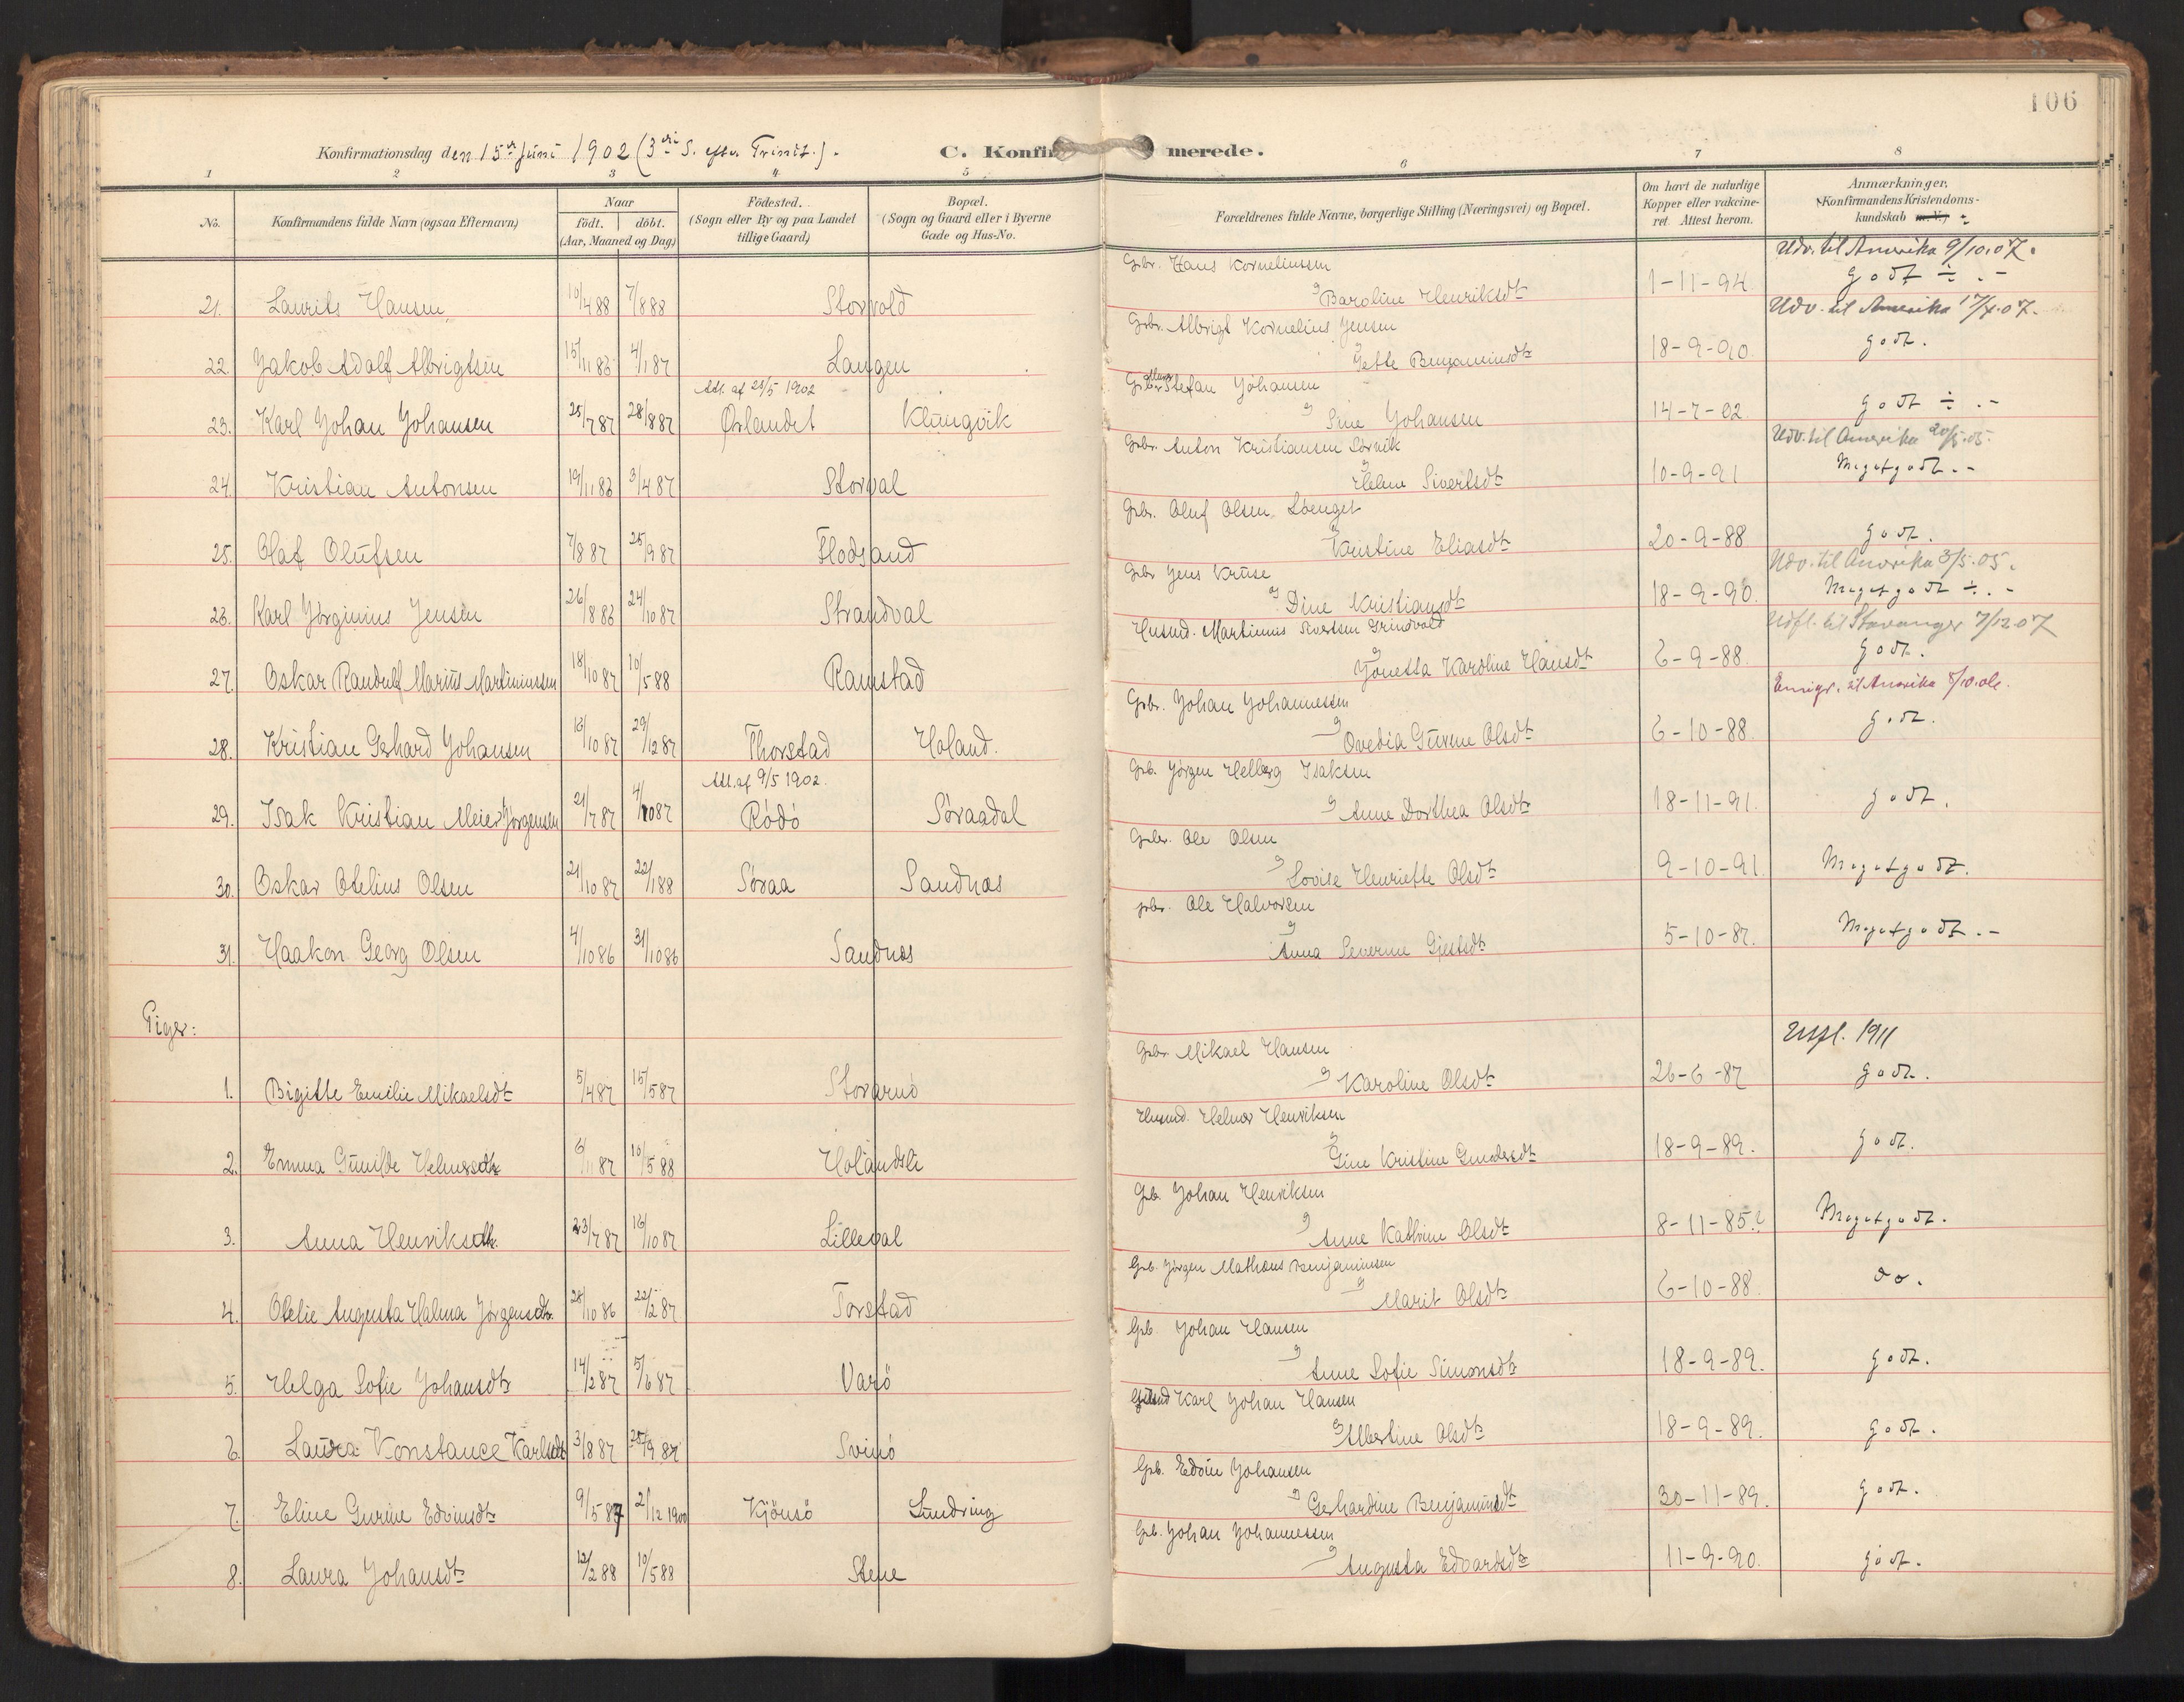 106
Konfirmationsdag den 15de Juni 1902 (3die S. efter Trinit.).
C. Konfirmerede.
1 2 3 4 5 6 7 8
No. Konfirmandens fulde Navn (ogsaa Efternavn) Naar födt. döbt. (Aar, Maaned og Dag) Födested. (Sogn eller By og paa Landet tillige Gaard) Bopæl. (Sogn og Gaard eller i Byerne Gade og Hus-No.
Forældrenes fulde Navne, borgerlige Stilling (Næringsvei) og Bopæl. Om havt de naturlige Kopper eller vakcineret. Attest herom. Anmærkninger. Konfirmandens Kristendomskundskab m. V.)
Gbr. Hans Korneliussen Udv. til Amerika 9/10.07.
21. Laurits Hansen 10/4 88 7/8 88 Storvold og Baroline Henriksdtr 1-11-94 godt ÷ .-
Gbr. Albrigt Kornelius Jensen Udv. til Amerika 17/4.07.
22. Jakob Adolf Albrigtsen 15/11 86 4/1 87 Langen og Jette Benjaminsdtr 18-9-90. godt.
Att. af 23/5 1902 Stefan Johansen
23. Karl Johan Johansen 25/7 87 28/8 87 Ørlandet Klungvik og Sine Johansen 14-7-02. godt ÷ .-
Gbr. Anton Kristiansen Sörvik Udv. til Amerika 20/5.05.
24. Kristian Antonsen 19/11 86 3/4 87 Storval og Helene Sivertsdtr 10-9-91 Megetgodt.-
Gbr. Oluf Olsen Löenget
25. Olaf Olufsen 7/8 87 25/9 87 Flodsand og Kristine Eliasdtr 20-9-88 godt.
Gbr Jens Kruse Udv. til Amerika 3/5.05.
26. Karl Jörginius Jensen 26/8 86 24/10 87 Strandval og Dine Kristiansdtr 18-9-90. Megetgodt ÷.-
Husmd. Martinus Sivertsen Grindvold Udfl. til Stavanger 7/12 07
27. Oskar Randulf Marius Martinussen 18/10 87 10/5 88 Ramstad og Jonetta Karoline Hansdtr 6-9-88. godt.
Gbr. Johan Johannessen Emigr. til Amerika 8/10.06.
28. Kristian Gerhard Johansen 16/10 87 29/12 87 Thorstad Holand. og Ovedia Gurine Olsdtr 6-10-88. godt.
Att. af 9/5 1902. Gb. Jörgen Helberg Isaksen
29. Isak Kristian Meier Jörgensen 21/7 87 4/10 87 Rödö Söraadal og Anne Dorthea Olsdtr 18-11-91. godt.
Gbr. Ole Olsen
30. Oskar Otelius Olsen 21/10 87 22/1 88 Söraa Sandnæs og Lovise Henriette Olsdtr 9-10-91. Megetgodt.
Gbr. Ole Halvorsen
31. Haakon Georg Olsen 4/10 86 31/10 86 Sandnæs og Anna Severine Gjertsdtr 5-10-87. Megetgodt.-
Piger:
Gbr. Mikael Hansen Udfl. 1911
1. Bigitte Emilie Mikaelsdtr 5/4 87 15/5 87 Storarnö og Karoline Olsdtr 26-6-87 godt.
Husmd. Helmer Henriksen
2. Emma Gunilde Helmersdtr 6/11 87 10/5 88 Holandsli og Gine Kristine Gundersdtr 18-9-89. godt.
Gb. Johan Henriksen
3. Anna Henriksdtr. 23/7 87 16/10 87 Lilleval og Anne Kathrine Olsdtr 8-11-85.? Megetgodt.
Gb. Jörgen Mathæus Benjaminsen
4. Otelie Augusta Halma Jörgensdtr. 28/10 86 22/2 87 Torstad og Marit Olsdtr 6-10-88. do.
Gb. Johan Hansen
5. Helga Sofie Johansdtr 14/2 87 5/6 87 Varö og Anne Sofie Simonsdtr 18-9-89. godt.
Karl Johan Hansen
6. Laura Konstance Karlsdtr 3/8 87 25/9 87 Svinö og Albertine Olsdtr 18-9-89. godt.
Gb. Edvin Johansen
7. Eline Gurine Edvinsdtr 9/5 87 2/12 1900 Kjönsö Sundring og Gerhardine Benjaminsdtr 30-11-89. godt.
Gb. Johan Johannessen
8. Laura Johansdtr 12/2 88 10/5 88 Stene og Augusta Edvardsdtr 11-9-90. godt.